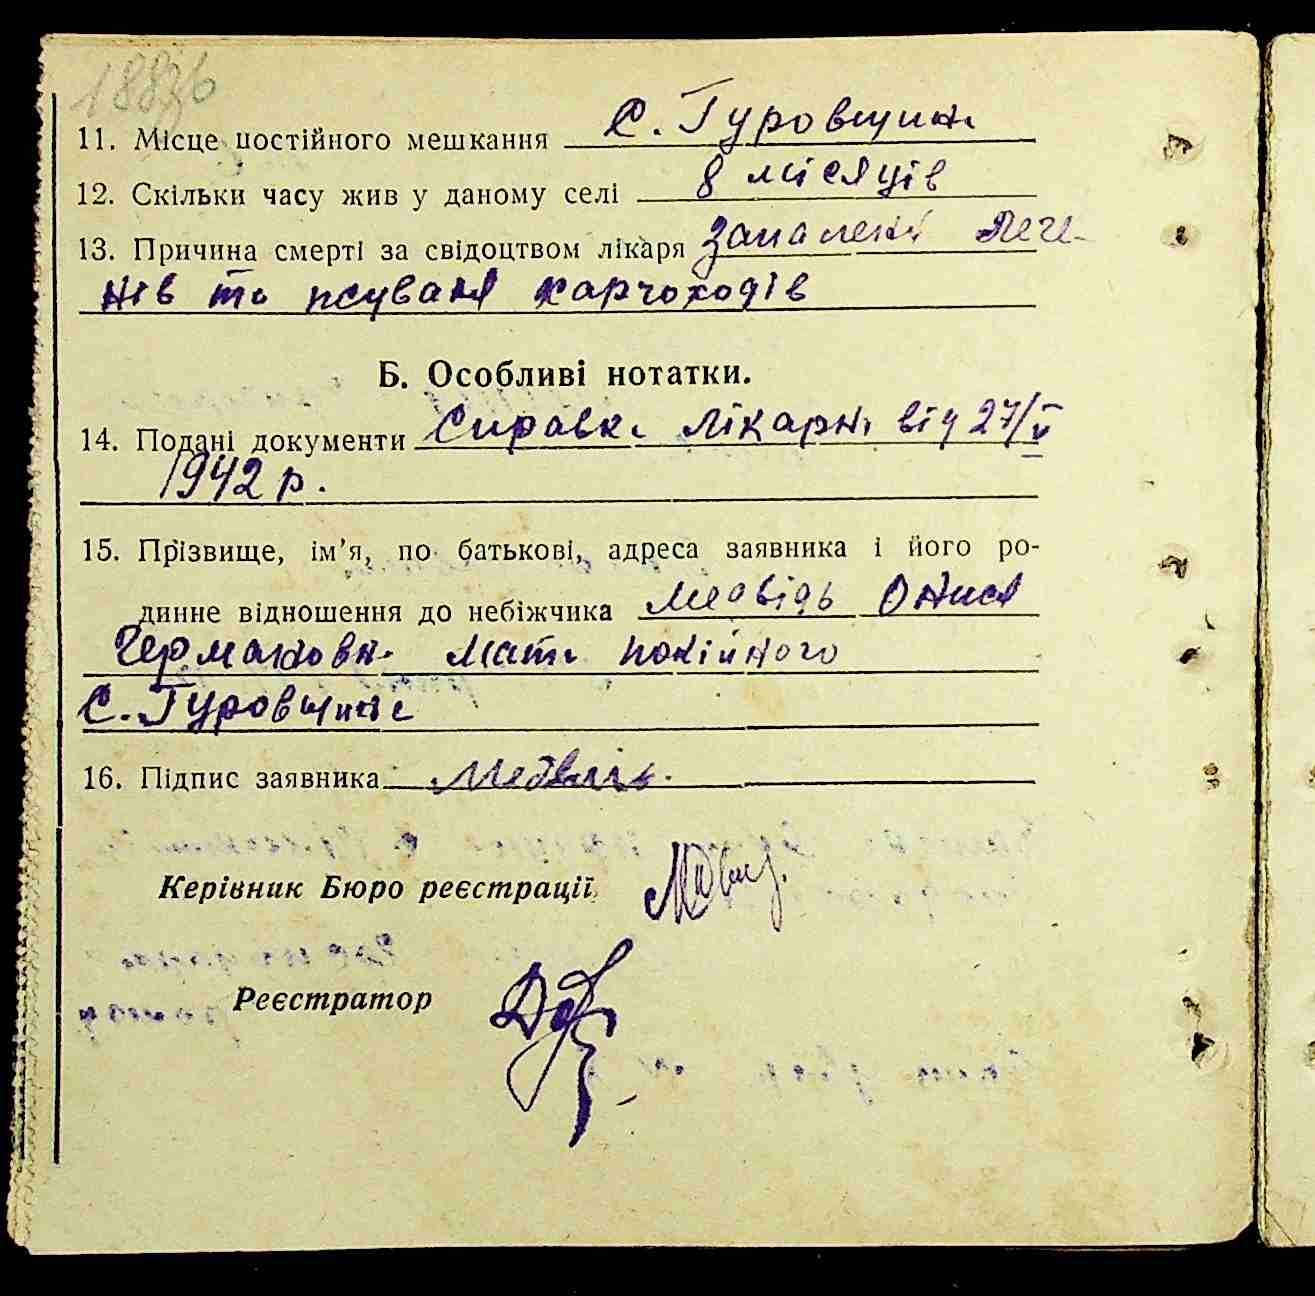 11. Місце постійного мешкання с. Гуровщина
12. Скільки часу жив у даному селі 8 місяців
13. Причина смерті за свідоцтвом лікаря запалені лege-
нів та псуваня харчоходів
Б. Особливі нотатки.
14. Подані документи Справка лікарні від 27/V
1942 р.
15. Прізвище, ім’я, по батькові, адреса заявника і його ро-
динне відношення до небіжчика Медвідь Онися
Германовна мати покійного
с. Гуровщина
16. Підпис заявника Медвидь.
Керівник Бюро реєстрації
Реєстратор